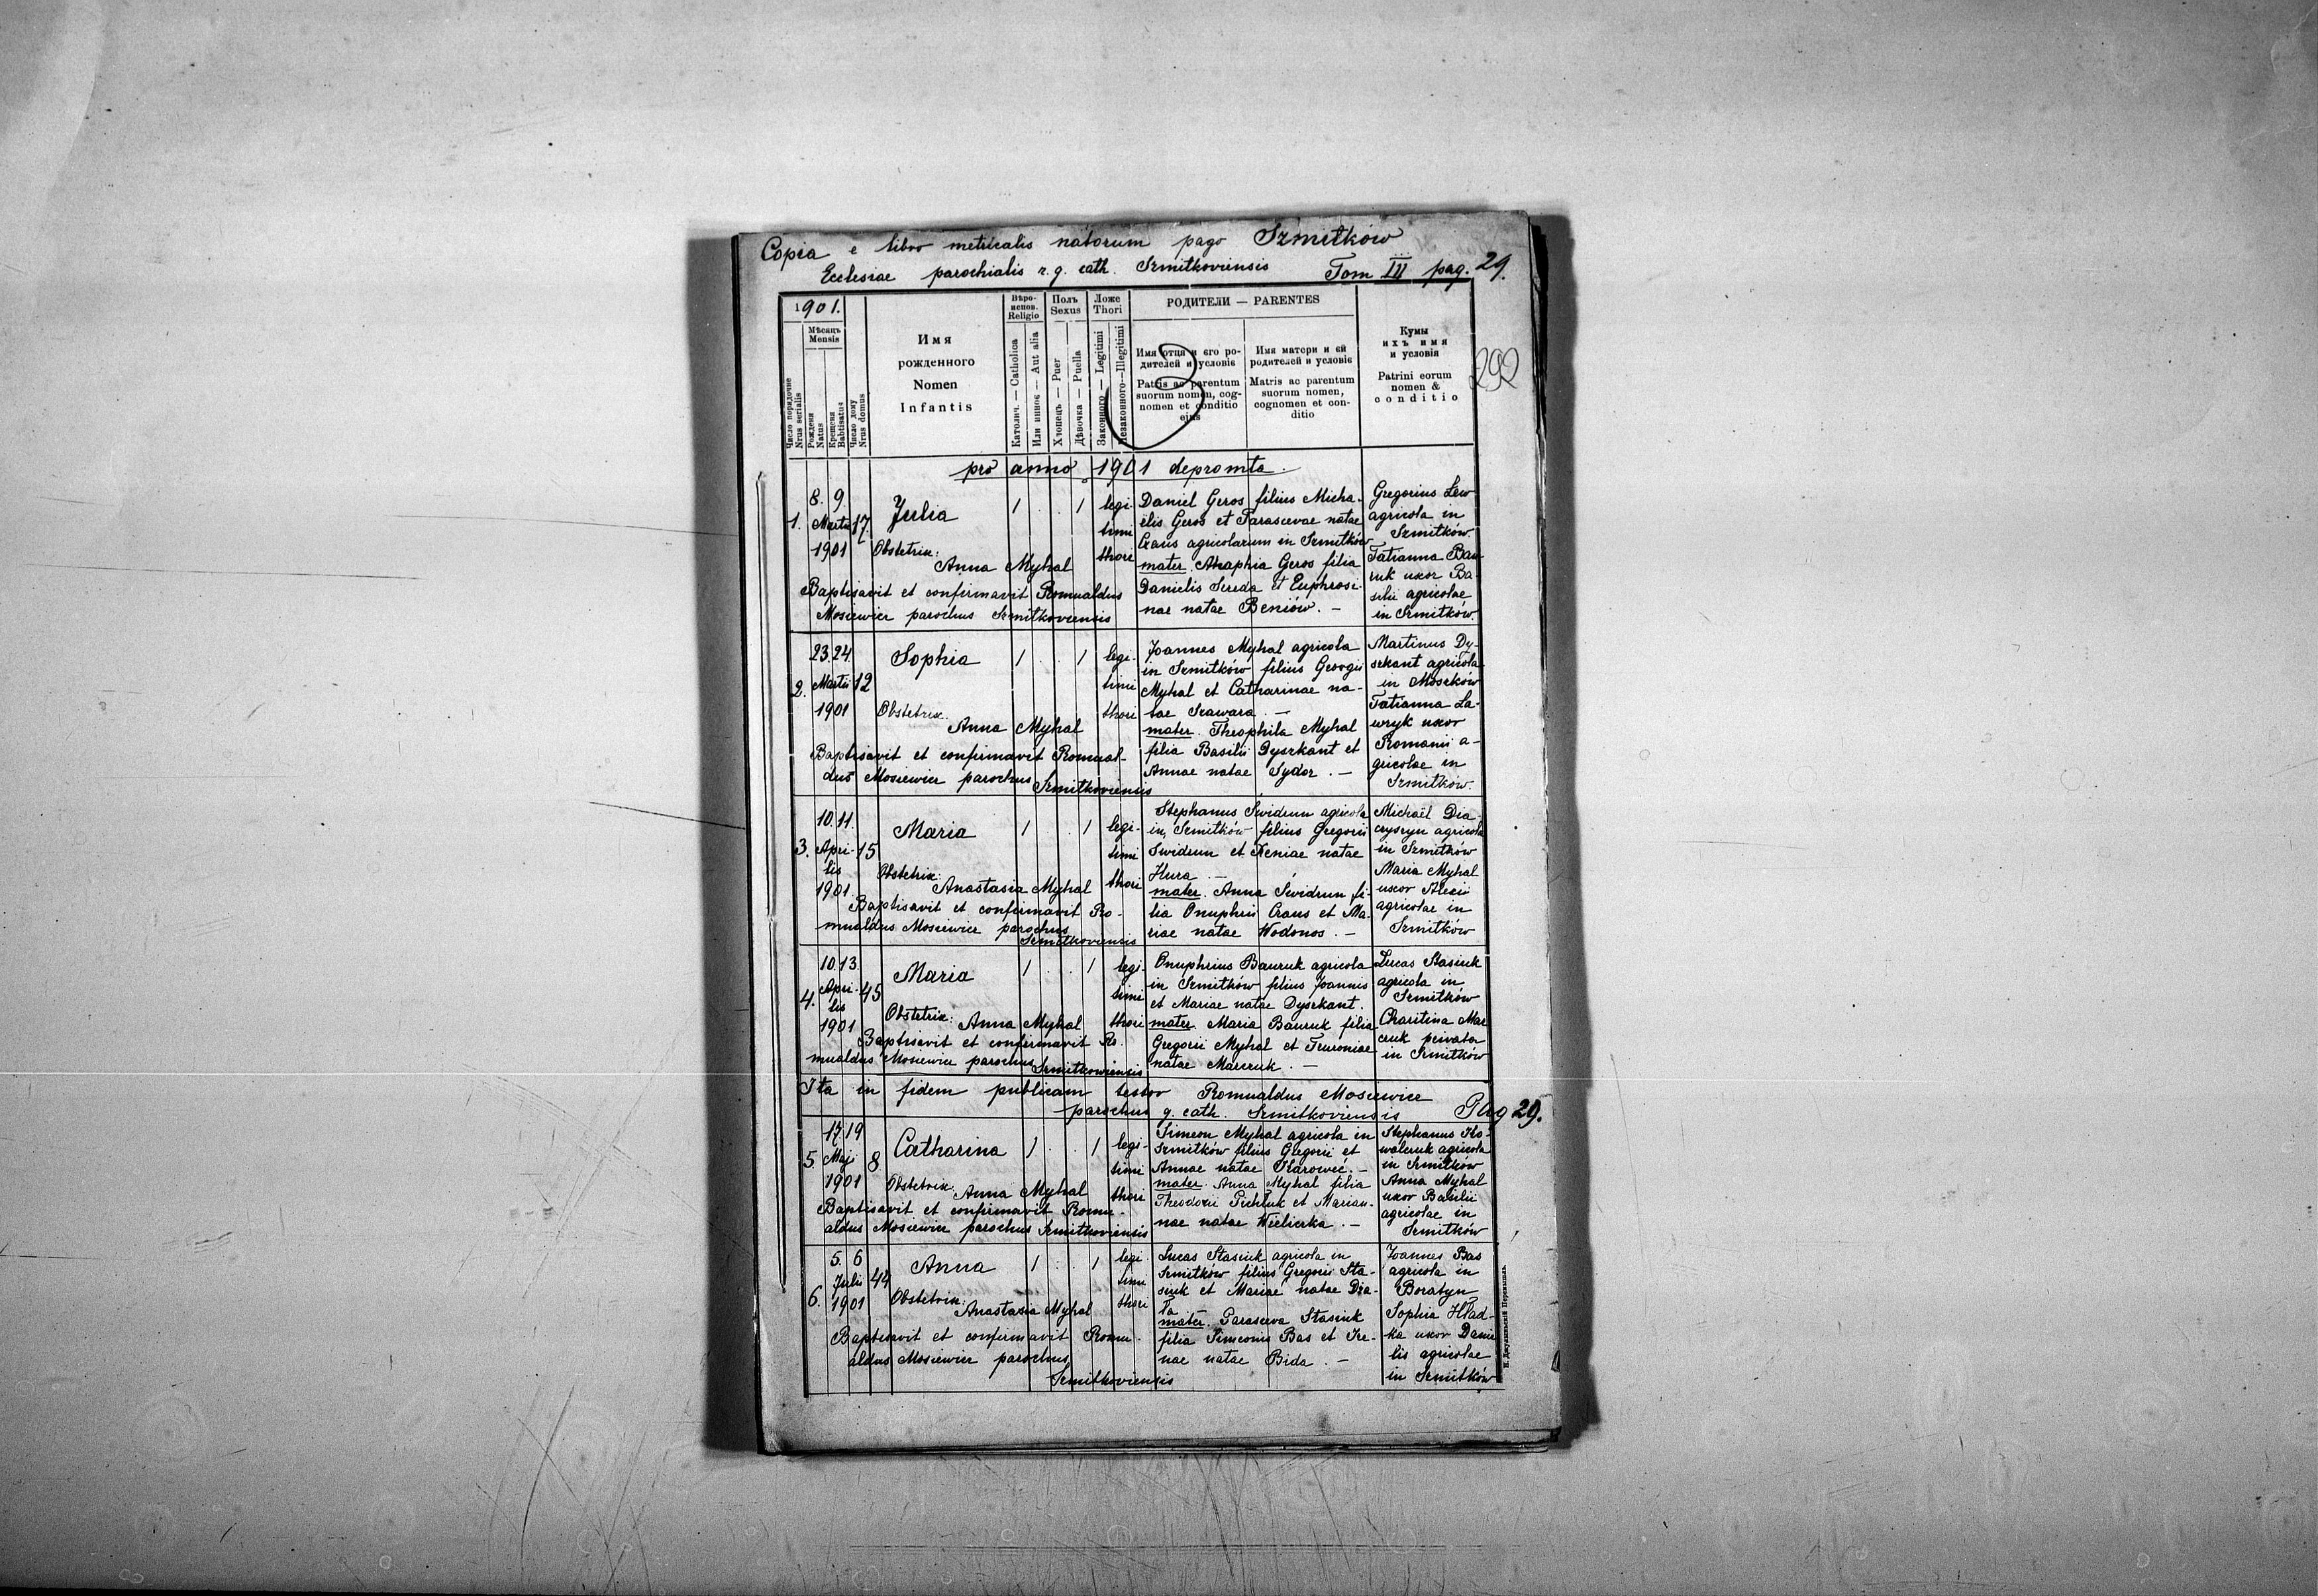 Copia e libro metricalis natorum pago Szmitków
Ecclesiae parochialis r. g. cath. Szmitkoviensis Tom III pag. 29.
292
1901.
Мѣсяць
Mensis
Число порядочне
Nrus serialis
Рожденя
Natus
Крещеня
Babtisatus
Число дому
Nrus domus
Имя
рожденного
Nomen
Infantis
Вѣро-
испов.
Religio
Католич. — Catholica
Или инноє — Aut alia
Полъ
Sexus
Хлопець — Puer
Дѣвочка — Puella
Ложе
Thori
Законного — Legitimi
Незаконного — Illegitimi
РОДИТЕЛИ — PARENTES
Имя отця и єго ро-
дителей и условіє
Patris ac parentum
suorum nomen, cog-
nomen et conditio
eius
Имя матери и єй
родителей и условіє
Matris ac parentum
suorum nomen,
cognomen et con-
ditio
Кумы
ихъ имя
и условія
Patrini eorum
nomen &
conditio
pro anno 1901 depromta.
1.
8. 9.
Martii
1901
17
Julia
Obstetrix:
Anna Myhal
Baptisavit et confirmavit Romualdus
Mosiewicz parochus Szmitkoviensis
1 . . 1
legi-
timi
thori
Daniel Geros filius Micha-
elis Geros et Parascevae natae
Craus agricolarum in Szmitków
mater. Ahaphia Geros filia
Danielis Sereda et Euphrosi-
nae natae Beniów. —
Gregorius Lew
agricola in
Szmitków.
Tatianna Bau-
ruk uxor Ba-
silii agricolae
in Szmitków.
2.
23. 24.
Martii
1901
12
Sophia
Obstetrix:
Anna Myhal
Baptisavit et confirmavit Romual-
dus Mosiewicz parochus
Szmitkoviensis
1 . . 1
legi-
timi
thori
Joannes Myhal agricola
in Szmitków filius Georgii
Myhal et Catharinae na-
tae Szawara. —
mater. Theophila Myhal
filia Basilii Dyszkant et
Annae natae Sydor. —
Martinus Dy-
szkant agricola
in Moszków
Tatianna La-
wryk uxor
Romanii a-
gricolae in
Szmitków.
3.
10. 11.
Apri-
lis
1901.
15
Maria
Obstetrix:
Anastasia Myhal
Baptisavit et confirmavit Ro-
mualdus Mosiewicz parochus
Szmitkoviensis
1 . . 1
legi-
timi
thori
Stephanus Swidrun agricola
in Szmitków filius Gregorii
Swidrun et Xeniae natae
Hura. —
mater. Anna Swidrun fi-
lia Onuphrii Craus et Ma-
riae natae Wodonos. —
Michaël Dia-
czyszyn agricola
in Szmitków
Maria Myhal
uxor Alexii
agricolae in
Szmitków
4.
10. 13.
Apri-
lis
1901
45
Maria
Obstetrix: Anna Myhal
Baptisavit et confirmavit Ro-
mualdus Mosiewicz parochus
Szmitkowiensis
1 . . 1
legi-
timi
thori
Onuphrius Bauruk agricola
in Szmitków filius Joannis
et Mariae natae Dyszkant.
mater. Maria Bauruk filia
Gregorii Myhal et Fruroniae
natae Marczuk. —
Lucas Stasiuk
agricola in
Szmitków
Charitina Mar-
czuk privata
in Szmitków
Ita in fidem publicam testor Romualdus Mosiewicz
parochus g. cath. Szmitkoviensis Pag 29.
5.
17. 19
Maji
1901
8
Catharina
Obstetrix: Anna Myhal
Baptisavit et confirmavit Romu-
aldus Mosiewicz parochus Szmitkoviensis
1 . . 1
legi-
timi
thori
Simeon Myhal agricola in
Szmitków filius Gregorii et
Annae natae Karoweć. —
mater. Anna Myhal filia
Theodorii Pichluk et Marian-
nae natae Wieliczka. —
Stephanus Ko-
walczuk agricola
in Szmitków
Anna Myhal
uxor Basilii
agricolae in
Szmitków
6.
5. 6
Julii
1901
44
Anna
Obstetrix:
Anastasia Myhal
Baptisavit et confirmavit Romu-
aldus Mosiewicz parochus
Szmitkoviensis
1 . . 1
legi-
timi
thori
Lucas Stasiuk agricola in
Szmitków filius Gregorii Sta-
siuk et Mariae natae Dza-
ła
mater. Parasceva Stasiuk
filia Simeonis Bas et Ire-
nae natae Bida. —
Joannes Bas
agricola in
Boratyn
Sophia Hład-
ka uxor Danie-
lis agricolae
in Szmitków